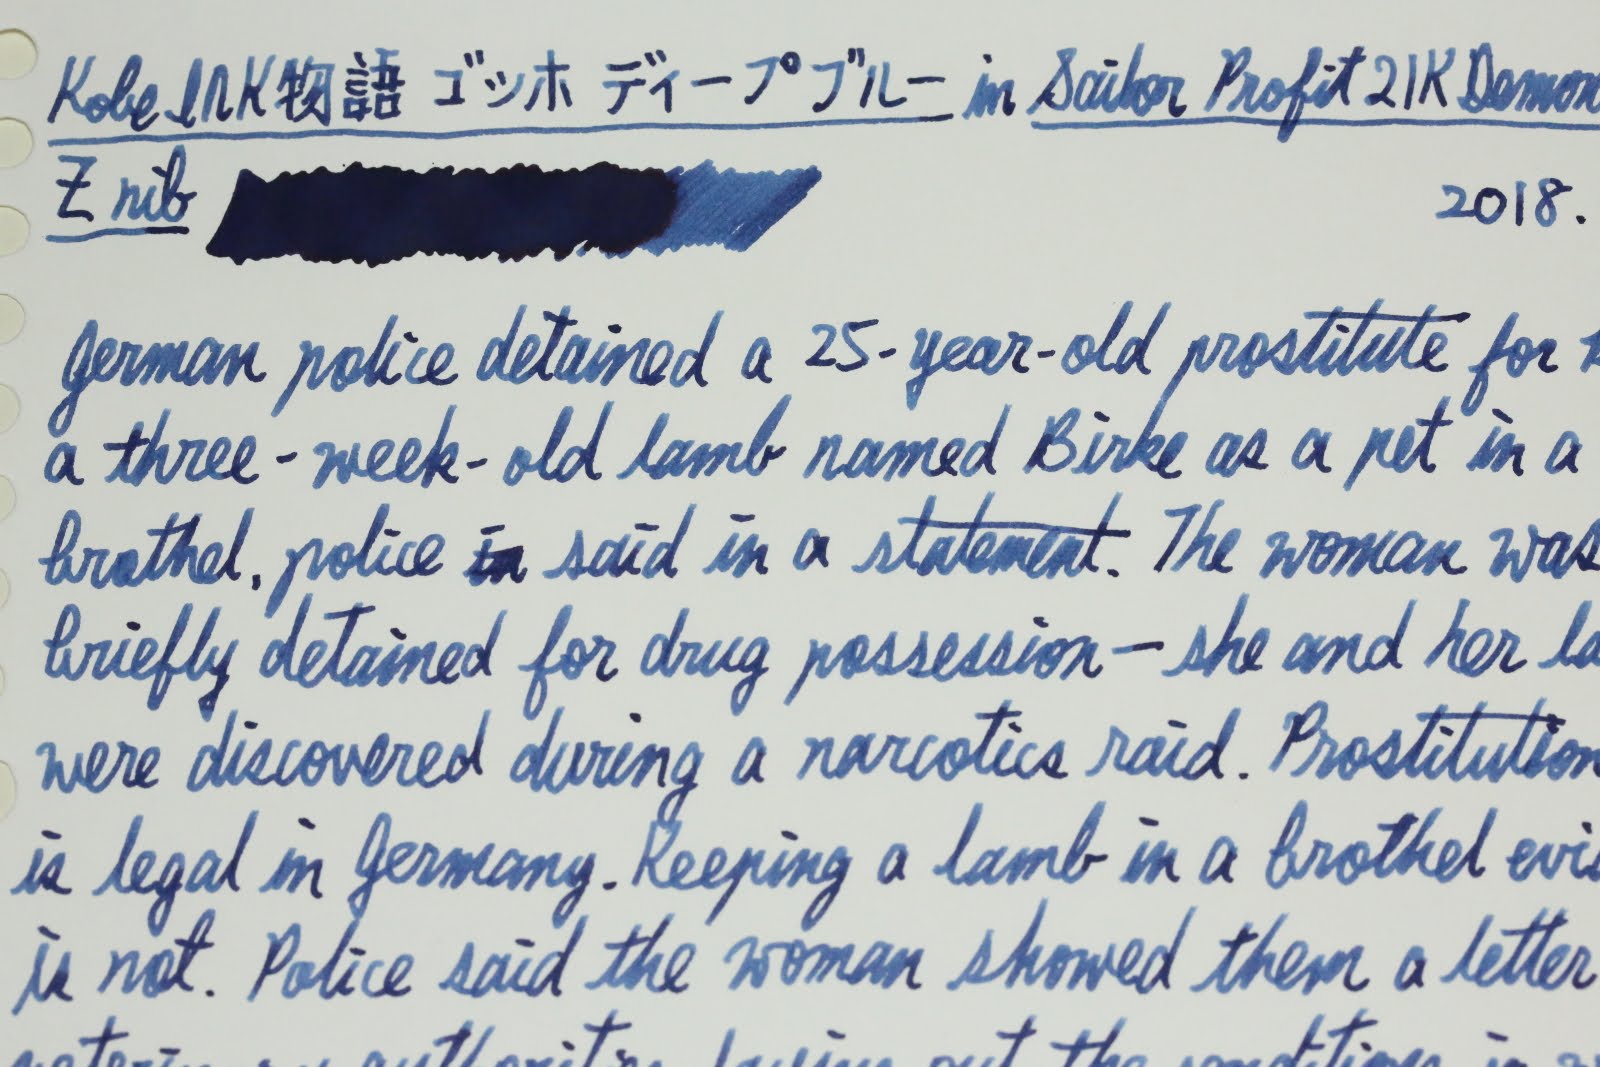 Kobe INK物語 ゴッホ ディープブルー in Sailor Profit 21K
Z nib 2018.
German police detained a 25-year-old prostitute for
a three-week-old lamb named Birke as a pet in a
brothel, police in said in a statement. The woman was
briefly detained for drug possession — she and her
were discovered during a narcotics raid. Prostitution
is legal in Germany. Keeping a lamb in a brothel
is not. Police said the woman showed them a letter
authorities laying out the conditions in